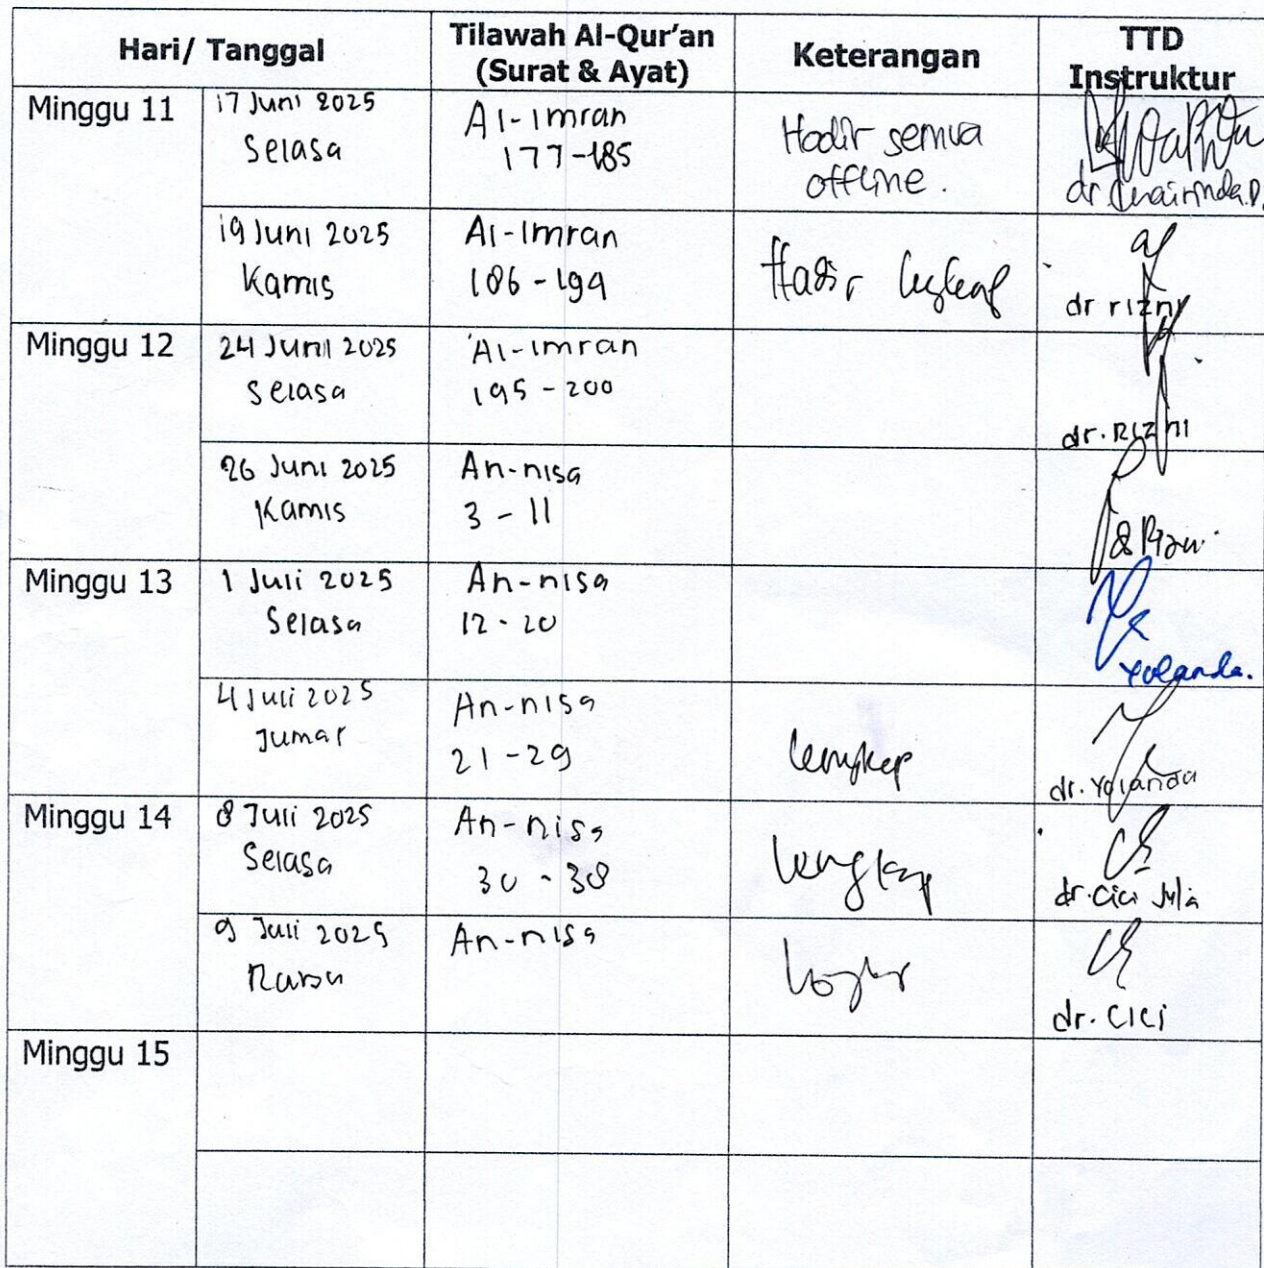 Hari/ Tanggal
Tilawah Al-Qur'an
(Surat & Ayat)
Keterangan
TTD
Instruktur
Minggu 11
17 Juni 2025
Selasa
Al-Imran
177-185
Hadir semua
offline.
dr.
19 Juni 2025
Kamis
Al-Imran
186-194
Hadir lengkap
dr rizny
Minggu 12
24 Juni 2025
Selasa
Al-Imran
195-200
dr. Rizni
26 Juni 2025
Kamis
An-nisa
3-11
Minggu 13
1 Juli 2025
Selasa
An-nisa
12-20
Yolanda.
4 Juli 2025
Jumat
An-nisa
21-29
lengkap
dr. Yolanda
Minggu 14
8 Juli 2025
Selasa
An-nisa
30-38
lengkap
dr. Cici Julia
9 Juli 2025
Rabu
An-nisa
dr. Cici
Minggu 15